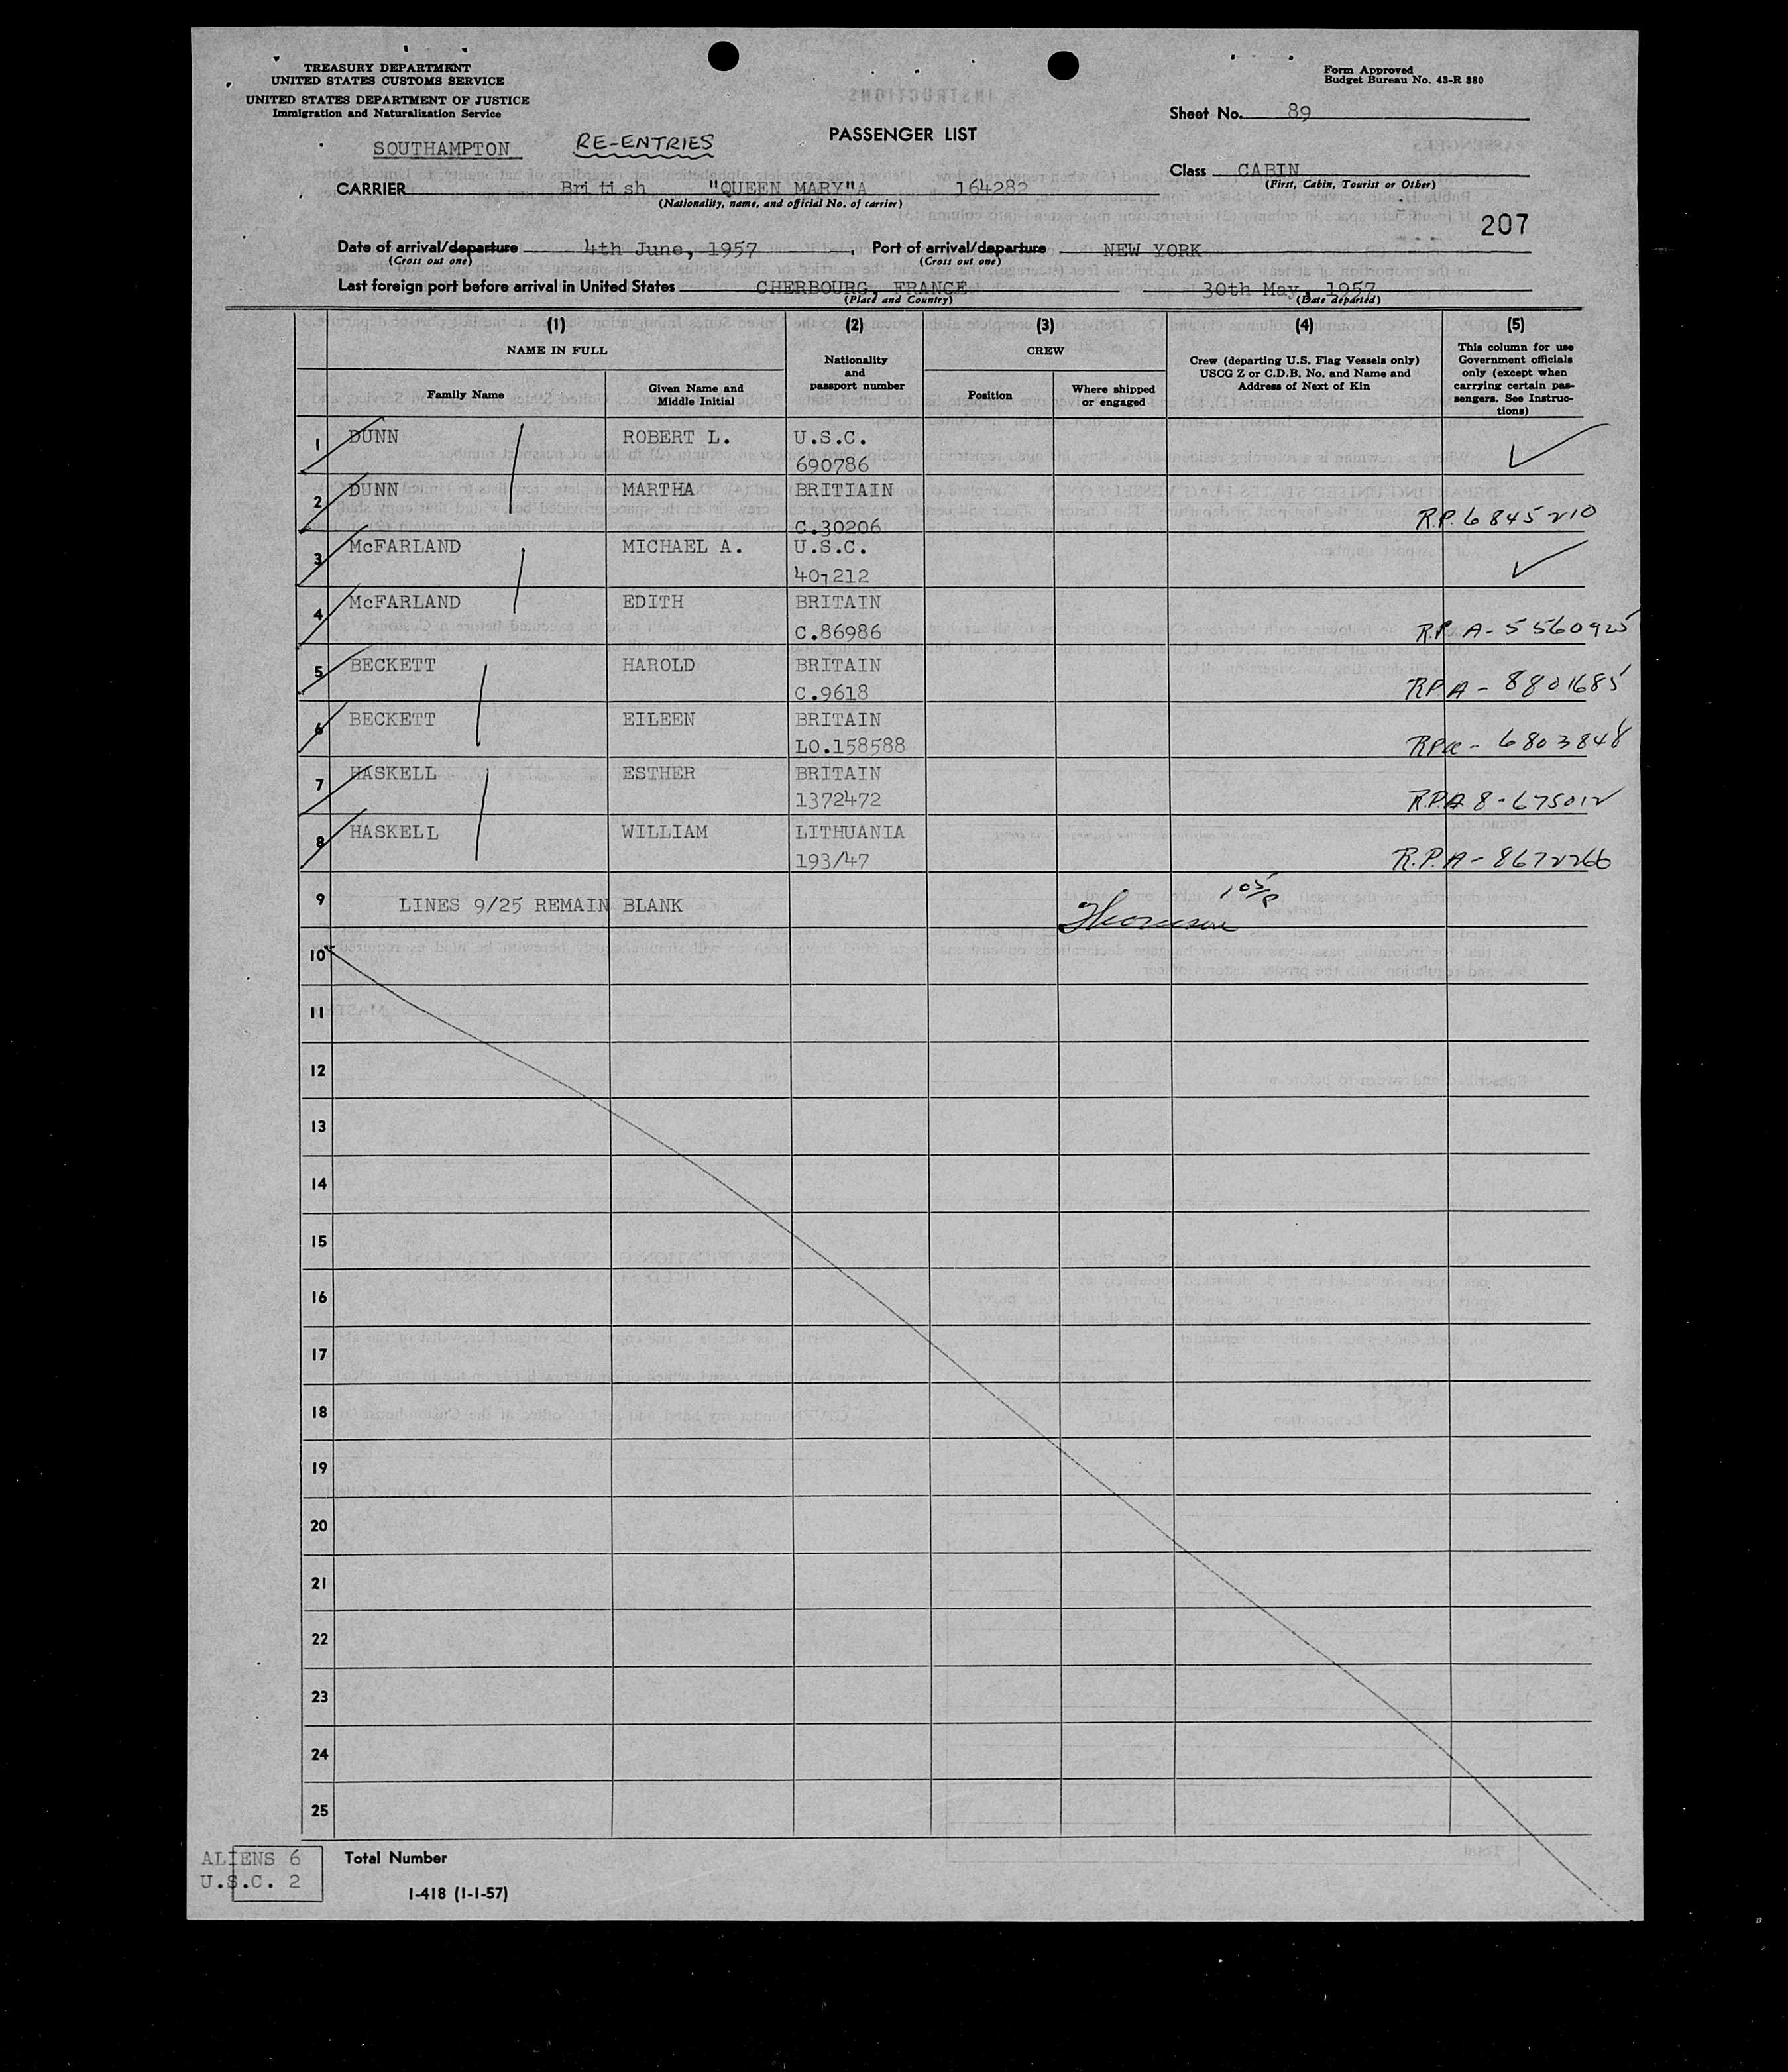 TREASURY DEPARTMENT
UNITED STATES CUSTOMS SERVICE
UNITED STATES DEPARTMENT OF JUSTICE
Immigration and Naturalization Service
Form Approved
Budget Bureau No. 43-R 380
Sheet No. 89
SOUTHAMPTON RE-ENTRIES PASSENGER LIST
Class CABIN
(First, Cabin, Tourist or Other)
CARRIER British "QUEEN MARY"A 164282
(Nationality, name, and official No. of carrier)
207
Date of arrival/departure 4th June, 1957, Port of arrival/departure NEW YORK
(Cross out one) (Cross out one)
Last foreign port before arrival in United States CHERBOURG, FRANCE 30th May, 1957
(Place and Country) (Date departed)
(1) (2) (3) (4) (5)
NAME IN FULL
Family Name
Given Name and
Middle Initial
Nationality
and
passport number
CREW
Position
Where shipped
or engaged
Crew (departing U.S. Flag Vessels only)
USCG Z or C.D.B. No. and Name and
Address of Next of Kin
This column for use
Government officials
only (except when
carrying certain pas-
sengers. See Instruc-
tions)
1 DUNN ROBERT L. U.S.C.
690786
2 DUNN MARTHA BRITIAIN
C.30206 R.P. 6845210
3 McFARLAND MICHAEL A. U.S.C.
407212
4 McFARLAND EDITH BRITAIN
C.86986 R.P. A-5560925
5 BECKETT HAROLD BRITAIN
C.9618 RPA-8801685
6 BECKETT EILEEN BRITAIN
LO.158588 RPA-6803848
7 HASKELL ESTHER BRITAIN
1372472 R.P.A 8-675012
8 HASKELL WILLIAM LITHUANIA
193/47 R.P.A-8672266
9 LINES 9/25 REMAIN BLANK
10
11
12
13
14
15
16
17
18
19
20
21
22
23
24
25
ALIENS 6
U.S.C. 2
Total Number
I-418 (1-1-57)